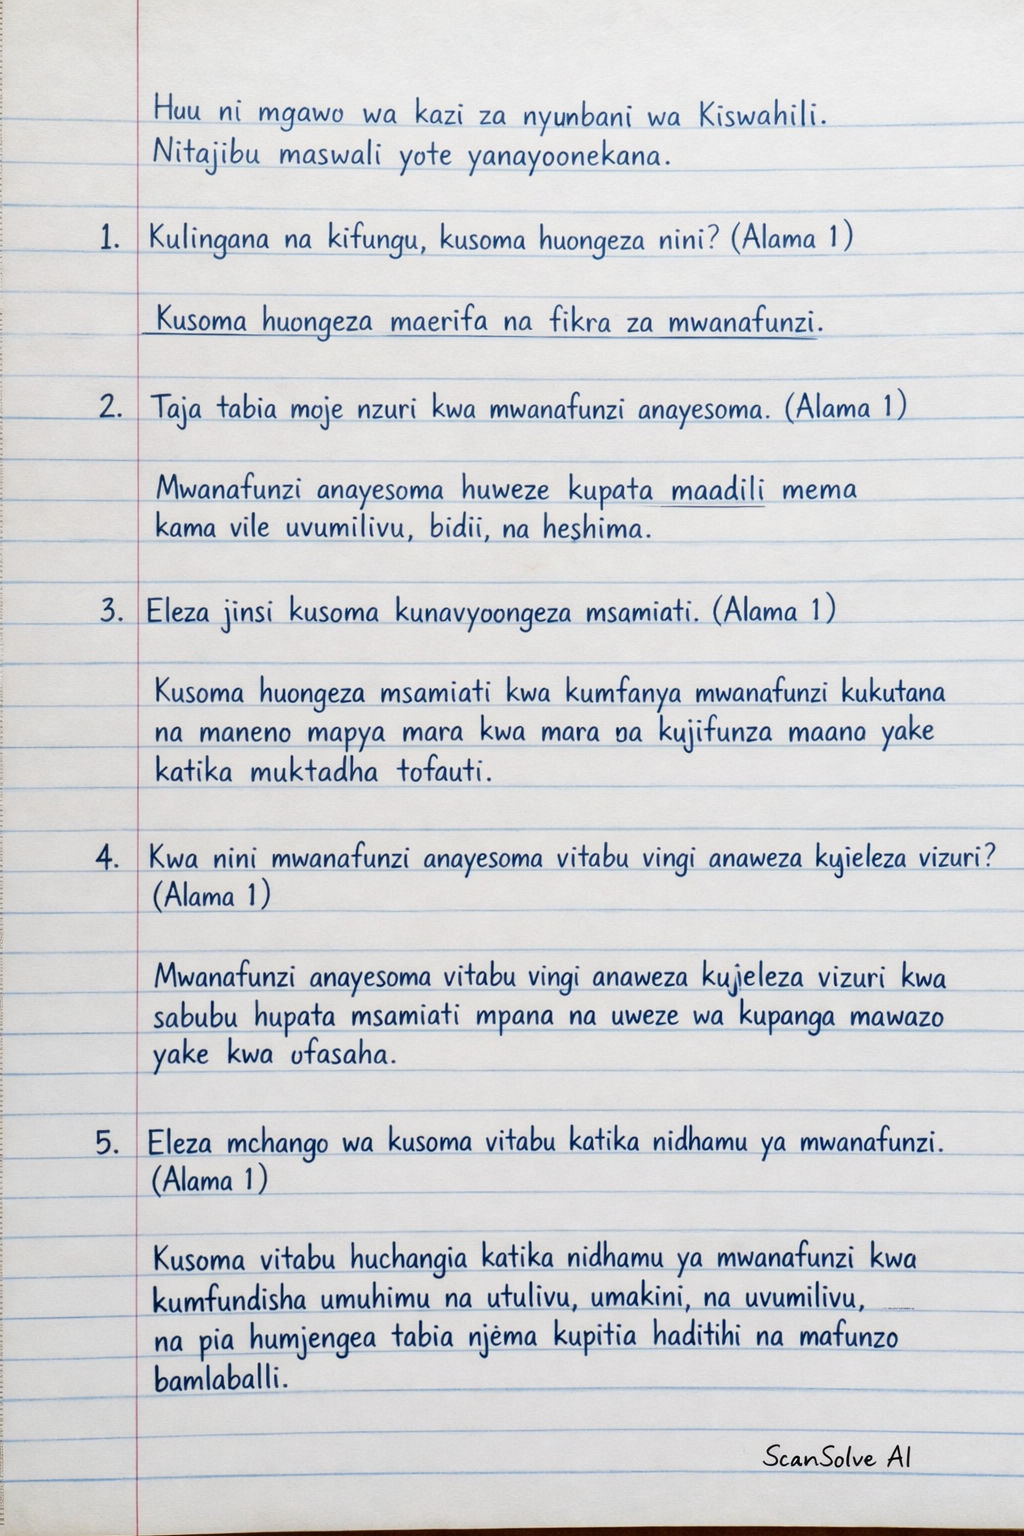 Huu ni mgawo wa kazi za nyunbani wa Kiswahili.
Nitajibu maswali yote yanayoonekana.
1. Kulingana na kifungu, kusoma huongeza nini? (Alama 1)
Kusoma huongeza maerifa na fikra za mwanafunzi.
2. Taja tabia moje nzuri kwa mwanafunzi anayesoma. (Alama 1)
Mwanafunzi anayesoma huweze kupata maadili mema
kama vile uvumilivu, bidii, na heshima.
3. Eleza jinsi kusoma kunavyoongeza msamiati. (Alama 1)
Kusoma huongeza msamiati kwa kumfanya mwanafunzi kukutana
na maneno mapya mara kwa mara na kujifunza maana yake
katika muktadha tofauti.
4. Kwa nini mwanafunzi anayesoma vitabu vingi anaweza kujieleza vizuri?
(Alama 1)
Mwanafunzi anayesoma vitabu vingi anaweza kujeleza vizuri kwa
sabubu hupata msamiati mpana na uweze wa kupanga mawazo
yake kwa ufasaha.
5. Eleza mchango wa kusoma vitabu katika nidhamu ya mwanafunzi.
(Alama 1)
Kusoma vitabu huchangia katika nidhamu ya mwanafunzi kwa
kumfundisha umuhimu na utulivu, umakini, na uvumilivu,
na pia humjengea tabia njema kupitia haditihi na mafunzo
bamlaballi.
ScanSolve AI